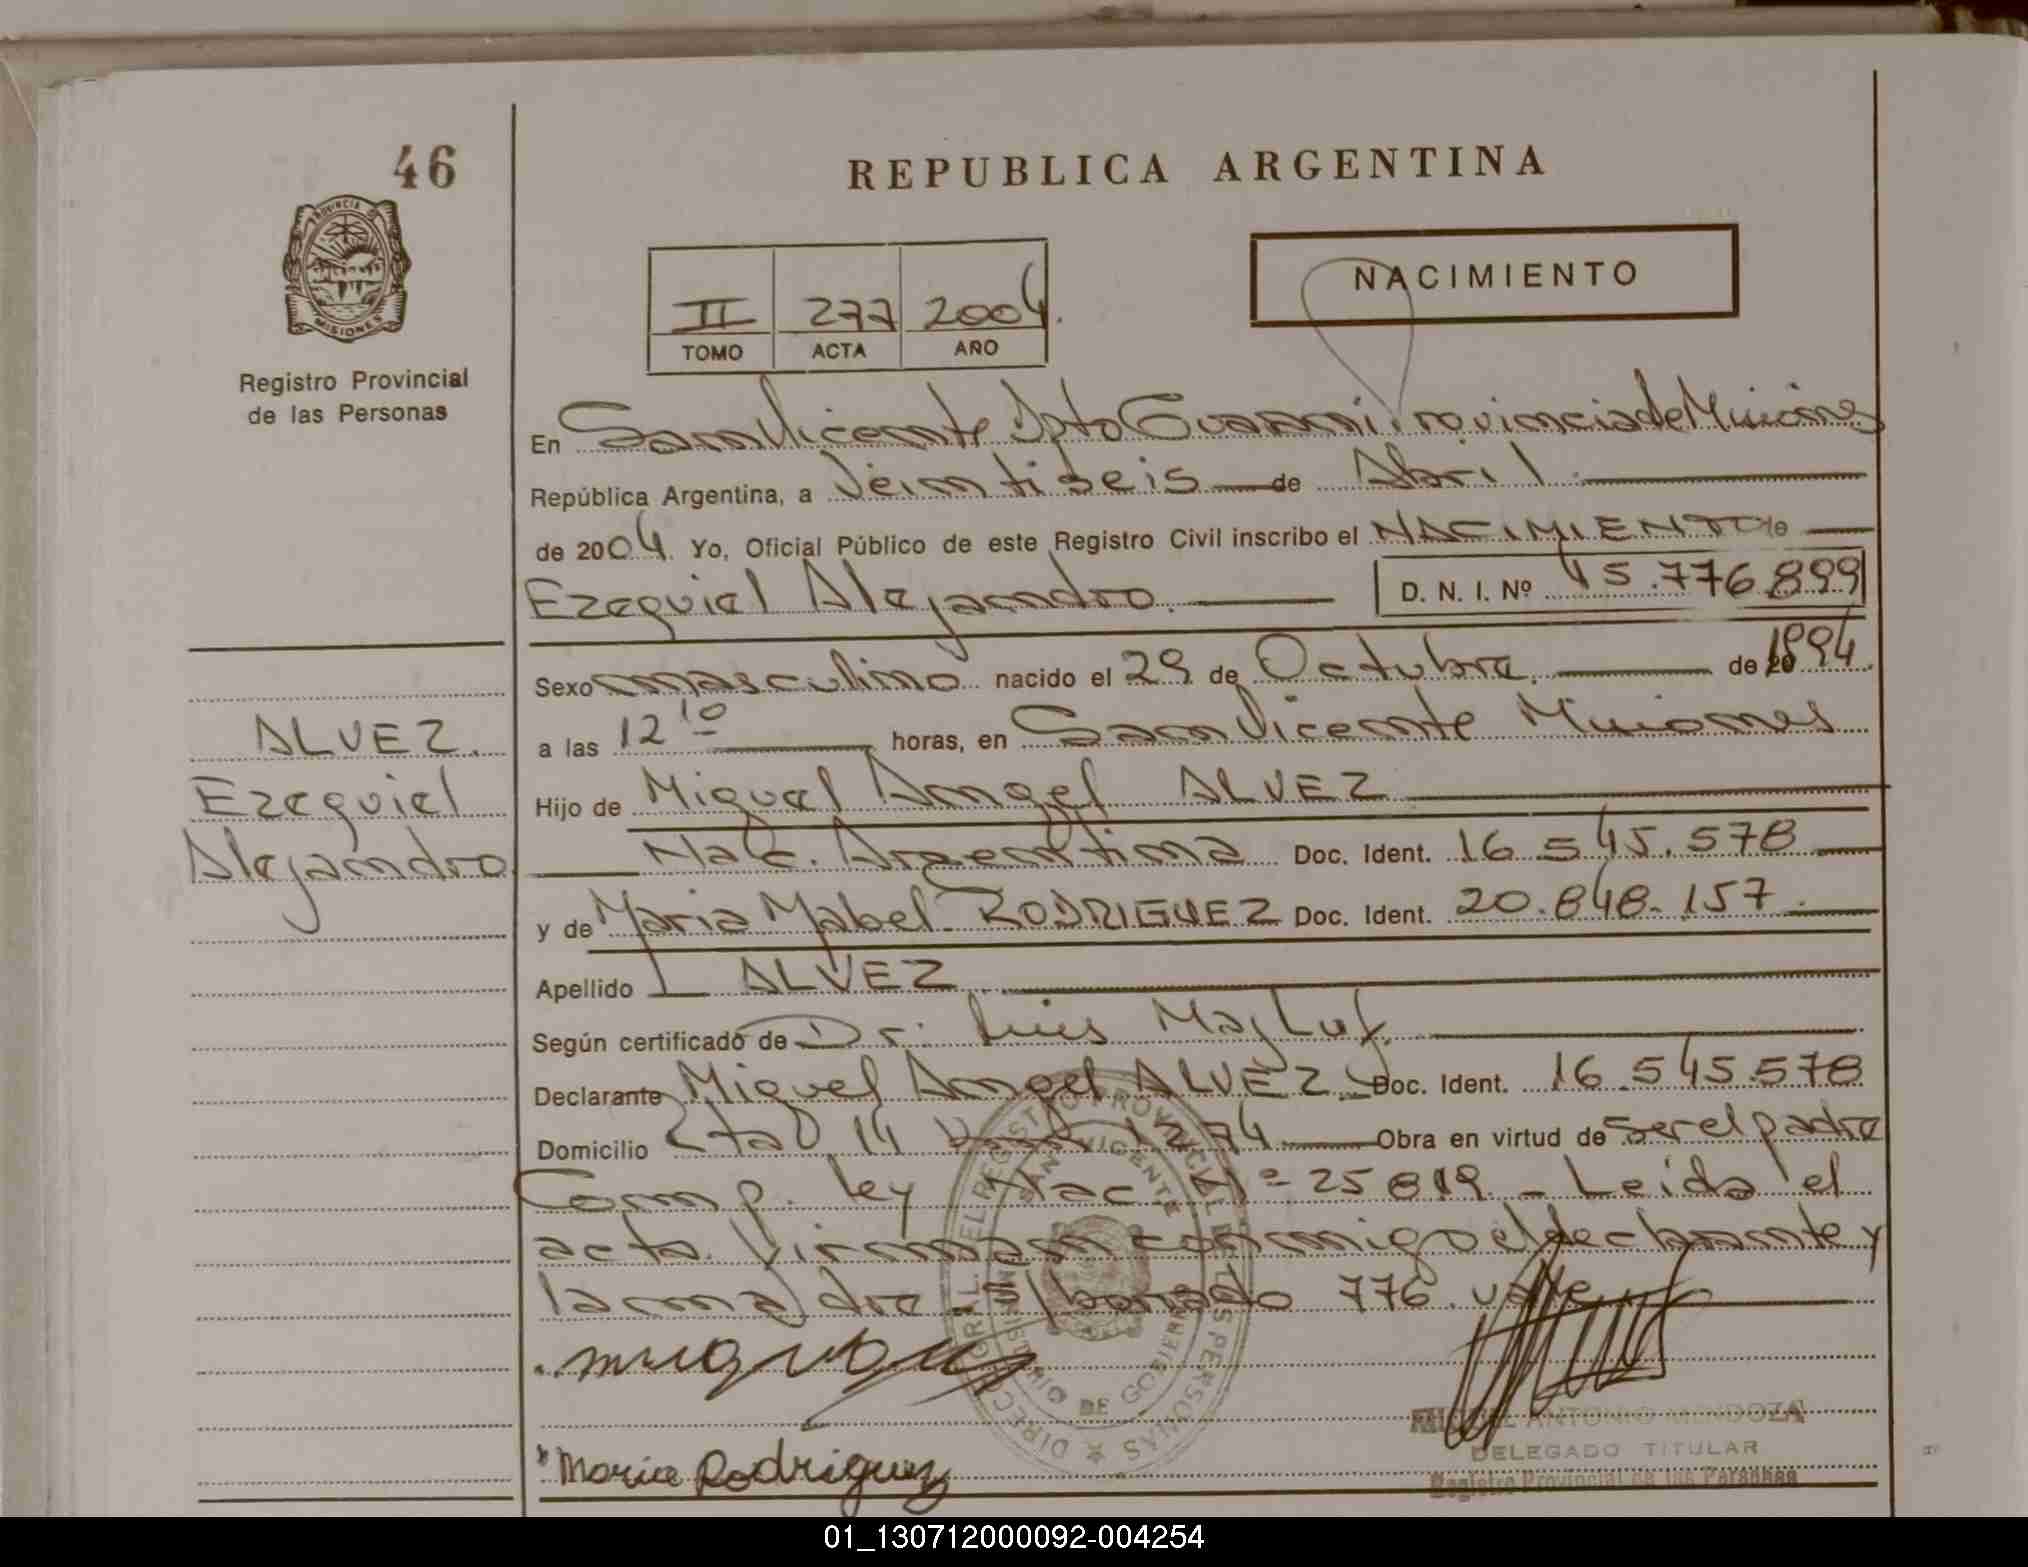 46
REPUBLICA ARGENTINA
PROVINCIA DE
MISIONES
Registro Provincial
de las Personas
NACIMIENTO
II 277 2004.
TOMO ACTA AÑO
En San Vicente Dpto Guarani Provincia de Misiones
República Argentina, a Veintiseis de Abril
de 2004. Yo, Oficial Público de este Registro Civil inscribo el NACIMIENTO de
Ezequiel Alejandro. D. N. I. Nº 45.776.899
Sexo masculino nacido el 29 de Octubre de 20 1994.
a las 12 10 horas, en San Vicente Misiones
Hijo de Miguel Angel ALVEZ
Nac. Argentina Doc. Ident. 16.545.578
y de Maria Mabel RODRIGUEZ Doc. Ident. 20.848.157.
Apellido ALVEZ
Según certificado de Dr. Luis Majluf.
Declarante Miguel Angel ALVEZ Doc. Ident. 16.545.578
Domicilio 14 1274 Obra en virtud de ser el padre
Comp. Ley Nac. Nº 25819 - Leida el
acta firman conmigo el declarante y
la madre 776. vale
Maria Rodriguez
ALVEZ.
Ezequiel
Alejandro
DIRECCION GRAL. DEL REGISTRO PROVINCIAL DE LAS PERSONAS
SAN VICENTE
MINISTERIO DE GOBIERNO
ANTONIO MENDOZA
DELEGADO TITULAR
Registro Provincial de las Personas
01_130712000092-004254